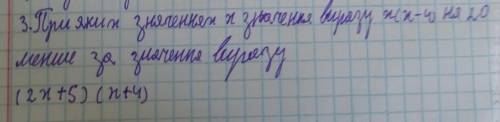 3. При яких значеннях x значення виразу x(x-4) на 20
менше за значення виразу
(2x+5)(x+4)